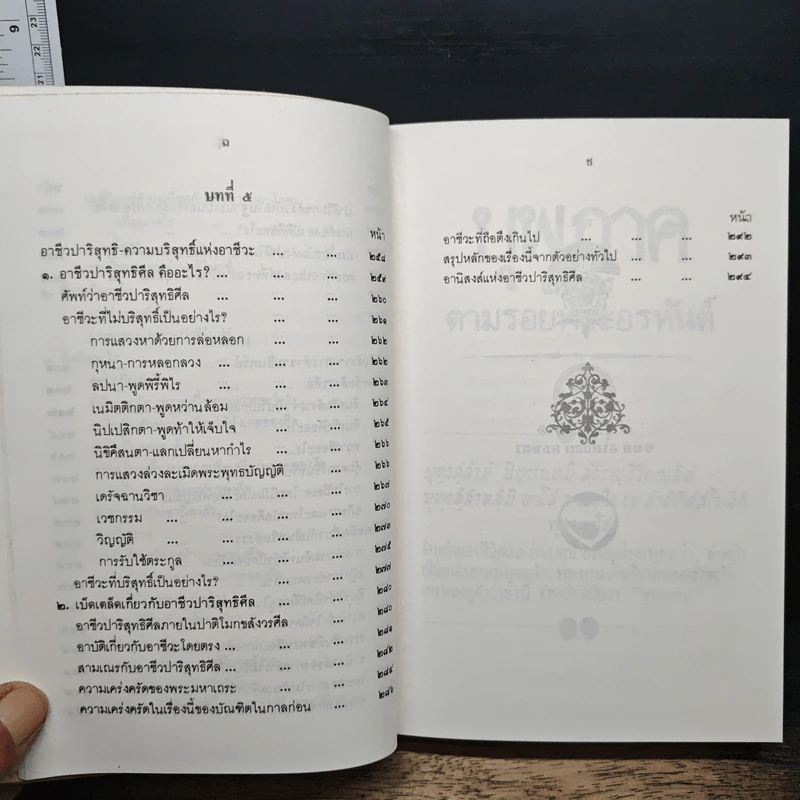 ฉ
บทที่ ๕
หน้า
อาชีวปาริสุทธิ-ความบริสุทธิ์แห่งอาชีวะ ... ... ๒๕๘
๑. อาชีวปาริสุทธิศีล คืออะไร? ... ... ๒๕๙
ศัพท์ว่าอาชีวปาริสุทธิศีล ... ... ๒๖๐
อาชีวะที่ไม่บริสุทธิ์เป็นอย่างไร? ... ๒๖๑
การแสวงหาด้วยการล่อหลอก ... ๒๖๒
กุหนา-การหลอกลวง ... ... ๒๖๒
ลปนา-พูดพิรี้พิไร ... ... ๒๖๓
เนมิตติกตา-พูดหว่านล้อม ... ๒๖๔
นิปเปสิกตา-พูดท้าให้เจ็บใจ ... ๒๖๕
นิชิคึสนตา-แลกเปลี่ยนหากำไร ... ๒๖๖
การแสวงล่วงละเมิดพระพุทธบัญญัติ ๒๖๖
เดรัจฉานวิชา ... ... ๒๖๗
เวชกรรม ... ... ... ๒๗๐
วิญญัติ ... ... ... ๒๗๓
การรับใช้ตระกูล ... ... ๒๗๕
อาชีวะที่บริสุทธิ์เป็นอย่างไร? ... ๒๗๗
๒. เบ็ดเตล็ดเกี่ยวกับอาชีวปาริสุทธิศีล ... ๒๘๐
อาชีวปาริสุทธิศีลภายในปาติโมกขสังวรศีล ๒๘๐
อาบัติเกี่ยวกับอาชีวะโดยตรง ... ... ๒๘๑
สามเณรกับอาชีวปาริสุทธิศีล ... ... ๒๘๒
ความเคร่งครัดของพระมหาเถระ ... ... ๒๘๔
ความเคร่งครัดในเรื่องนี้ของบัณฑิตในกาลก่อน ... ๒๘๖
ช
หน้า
อาชีวะที่ถือตึงเกินไป ... ... ... ๒๙๒
สรุปหลักของเรื่องนี้จากตัวอย่างทั่วไป ... ... ๒๙๓
อานิสงส์แห่งอาชีวปาริสุทธิศีล ... ... ๒๙๔